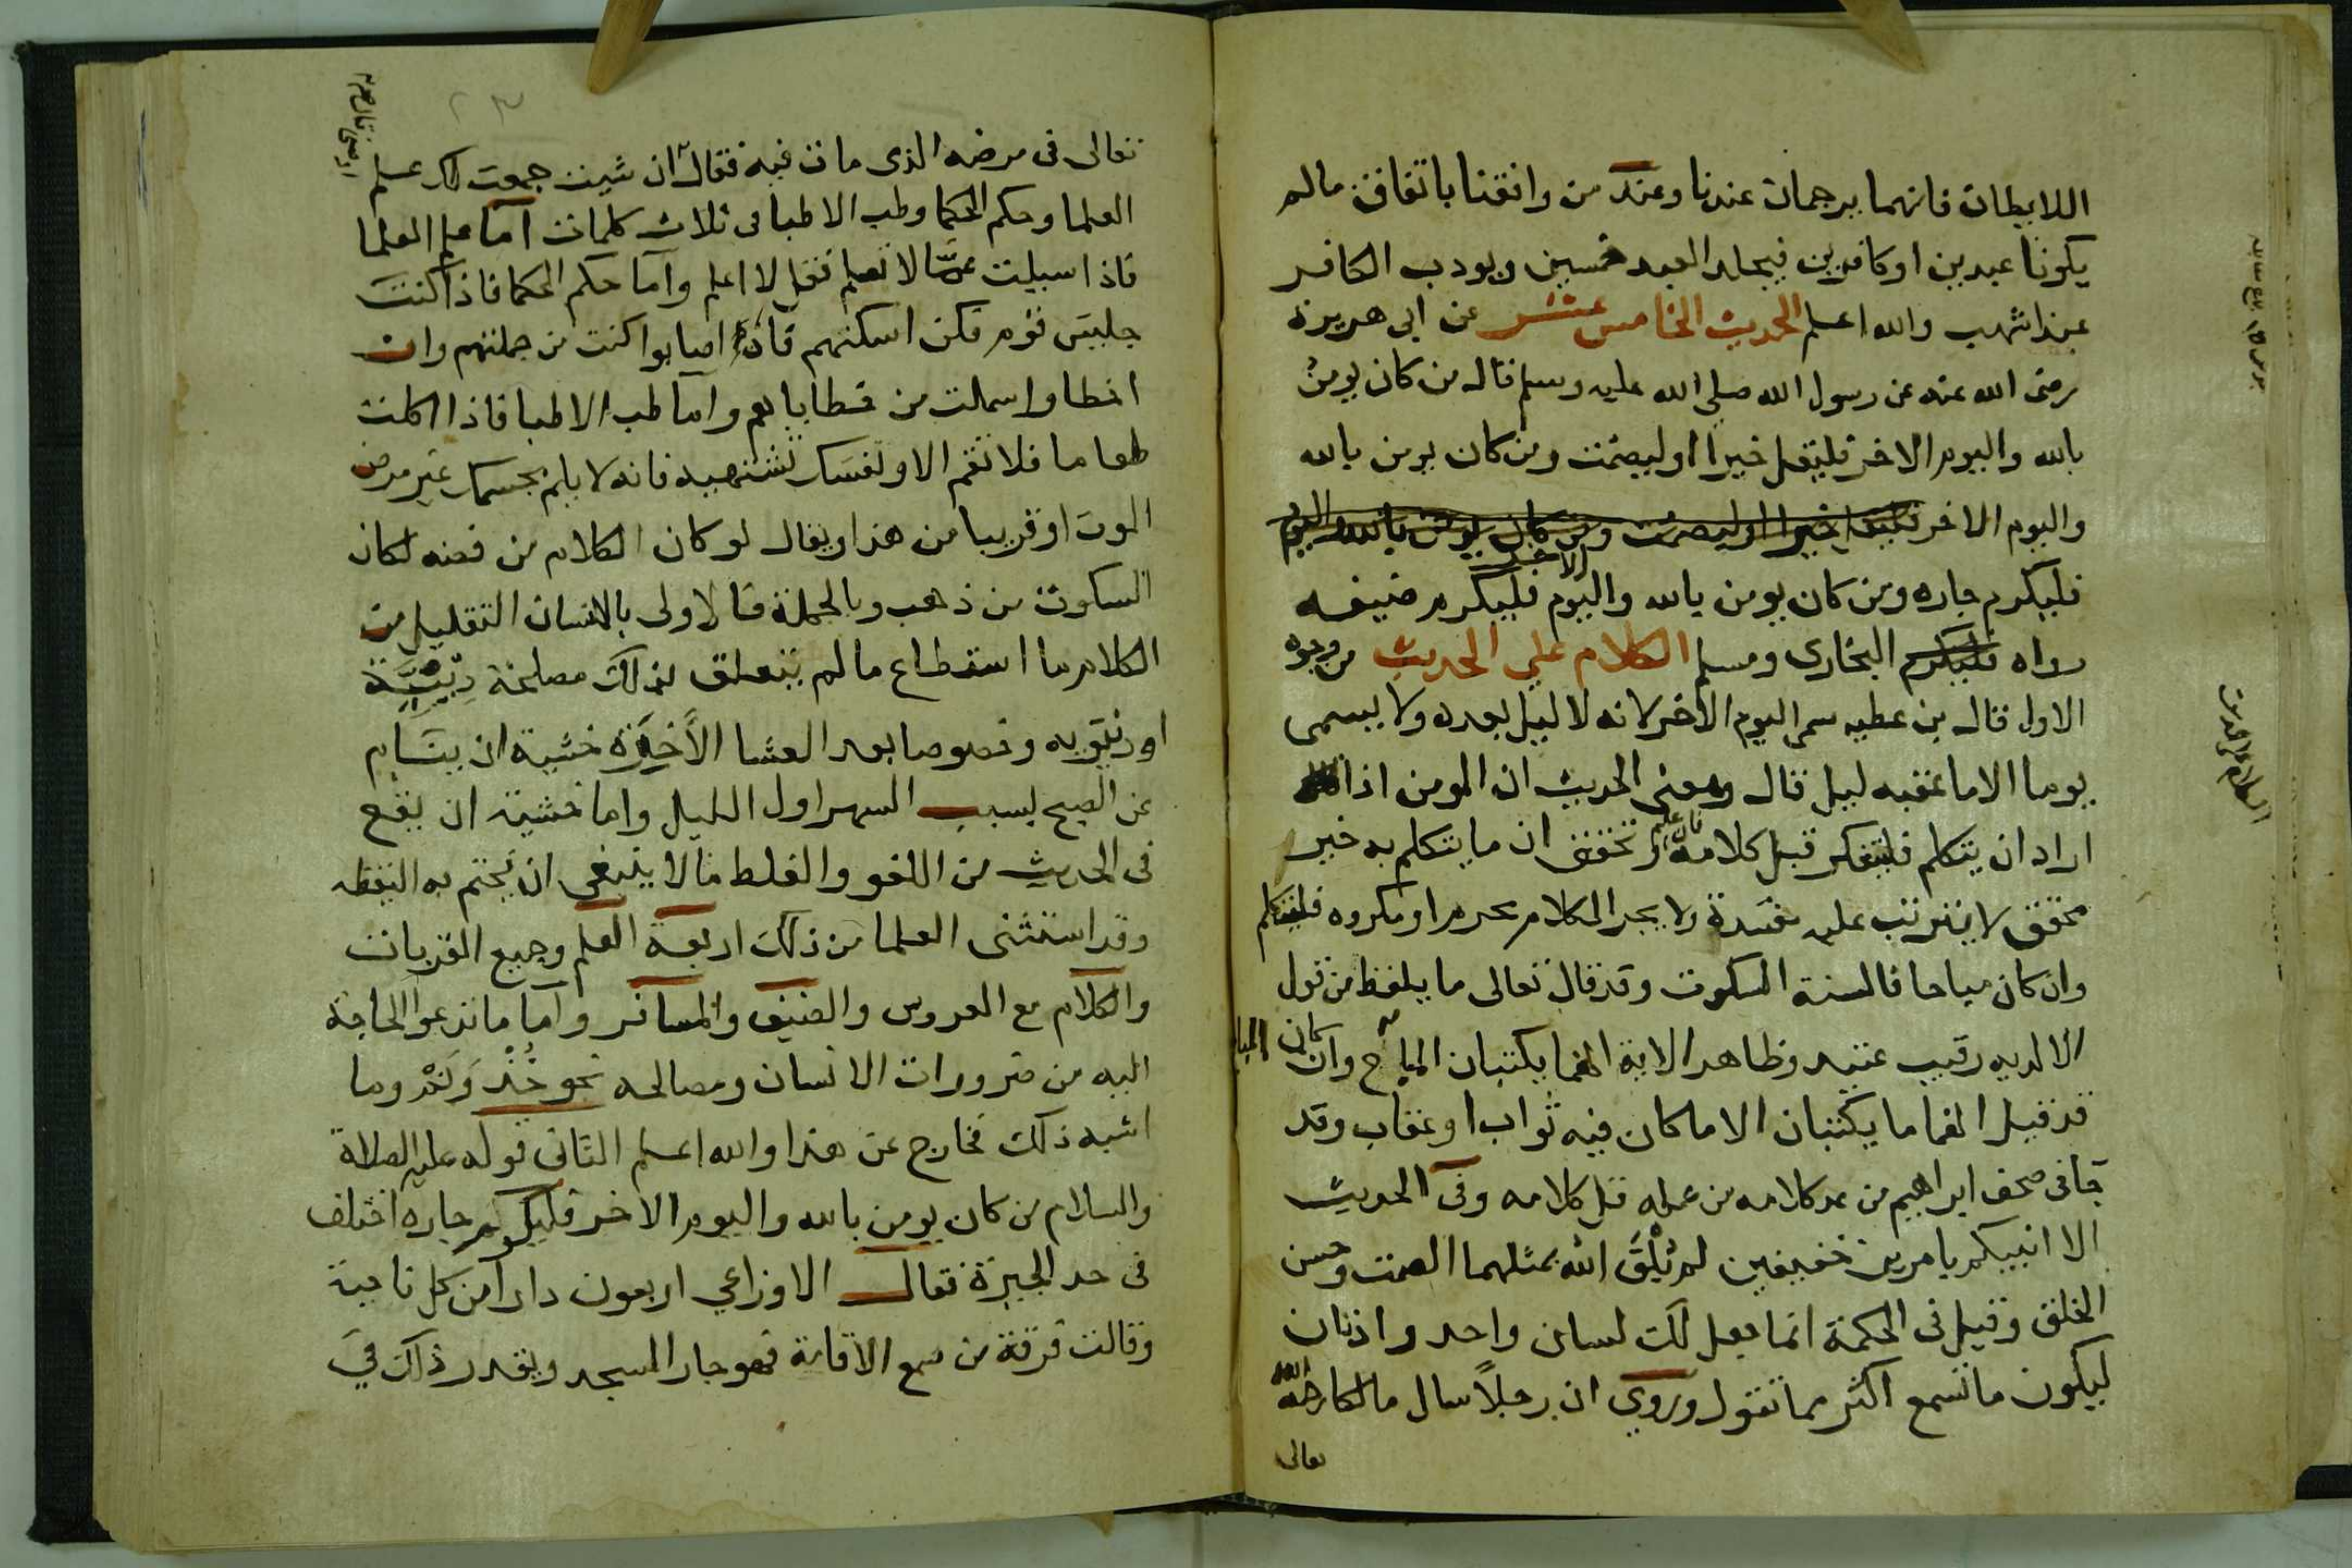 اللايطان فانهما يرجمان عندنا وعند من وافقنا باتفاق مالم
يكونا عبدين او كافرين فيجلد العبد خمسين ويودب الكافر
عند اشهب والله اعلم الحديث الخامس عشر عن ابي هريرة
رضى الله عنه عن رسول الله صلي الله عليه وسلم قال من كان يومن
بالله واليوم الاخر فليقل خيرا اوليصمت ومن كان يومن بالله
واليوم الاخر فليقل خيرا اوليصمت ومن كان يومن بالله اليوم
الاخر
فليكرم جاره ومن كان يومن بالله واليوم فليكرم ضيفه
رواه فليكرم البخارى ومسلم الكلام علي الحديث من وجوه
الاول قال بن عطيه سمى اليوم الاخر لانه لا ليل بعده ولا يسمى
يوما الا ما عقبه ليل قال ومعنى الحديث ان المومن اذا
اراد ان يتكلم فليتفكر قبل كلامه تحقق ان ما يتكلم به خير
محقق لا يترتب عليه مفسدة ولا يجر الكلام محرم او مكروه فليتكلم
وان كان مباحا فالسنة السكوت وقد قال تعالى ما يلفظ من قول
الا لديه رقيب عتيد وظاهر الاية انهما يكتبان المباح وان كان المبا
قد قيل انهما ما يكتبان الا ما كان فيه ثواب او عقاب وقد
جا فى صحف ابراهيم من عد كلامه من عمله قل كلامه وفى الحديث
الا انبيكم بامرين خفيفين لم يُلْقَ الله بمثلهما الصمت وحسن
الخلق وقيل فى الحكمة انما جعل لك لسان واحد واذنان
ليكون ما تسمع اكثر مما تقول وروي ان رجلاً سال مالكا رحمه الله
تعالى
تعالى فى مرضه الذى مات فيه فقال ان شيت جمعت لك علم
العلما وحكم الحكما وطب الاطبا فى ثلاث كلمات اما علم العلما
فاذا سيلت عمَّا لا تعلم فقل لا اعلم واما حكم الحكما فاذا كنت
جليس قوم فكن اسكتهم فان اصابوا كنت من جملتهم وان
اخطاوا سلمت من خطاياهم واما طب الاطبا فاذا اكلت
طعاما فلا تقم الا ونفسك تشتهيه فانه لا يلم بجسمك غير مرض
الموت او قريبا من هذا ويقال لو كان الكلام من فضه لكان
السكوت من ذهب وبالجملة فالاولى بالانسان التقليل من
الكلام ما استطاع مالم يتعلق بذلك مصلحة دينيَّة
او دنيويه وخصوصا بعد العشا الأخيرَة خشية ان ينام
عن الصبح بسبب السهر اول الليل واما خشية ان يقع
فى الحديث من اللغو والغلط مالا ينبغى ان يختم به اليقظه
وقد استثنى العلما من ذلك اربعة العلم وجميع القربات
والكلام مع العروس والضيف والمسافر واما ما تدعو الحاجة
اليه من ضرورات الانسان ومصالحه نحو خُذْ وَ وما
اشبه ذلك فخارج عن هذا والله اعلم الثانى قوله عليه الصلاة
والسلام من كان يومن بالله واليوم الاخر فليكرم جاره اختلف
فى حد الجيرة فقال الاوزاعي اربعون دارا من كل ناحية
وقالت فرقة من سمع الاقامة فهو جار المسجد ويقدر ذلك في